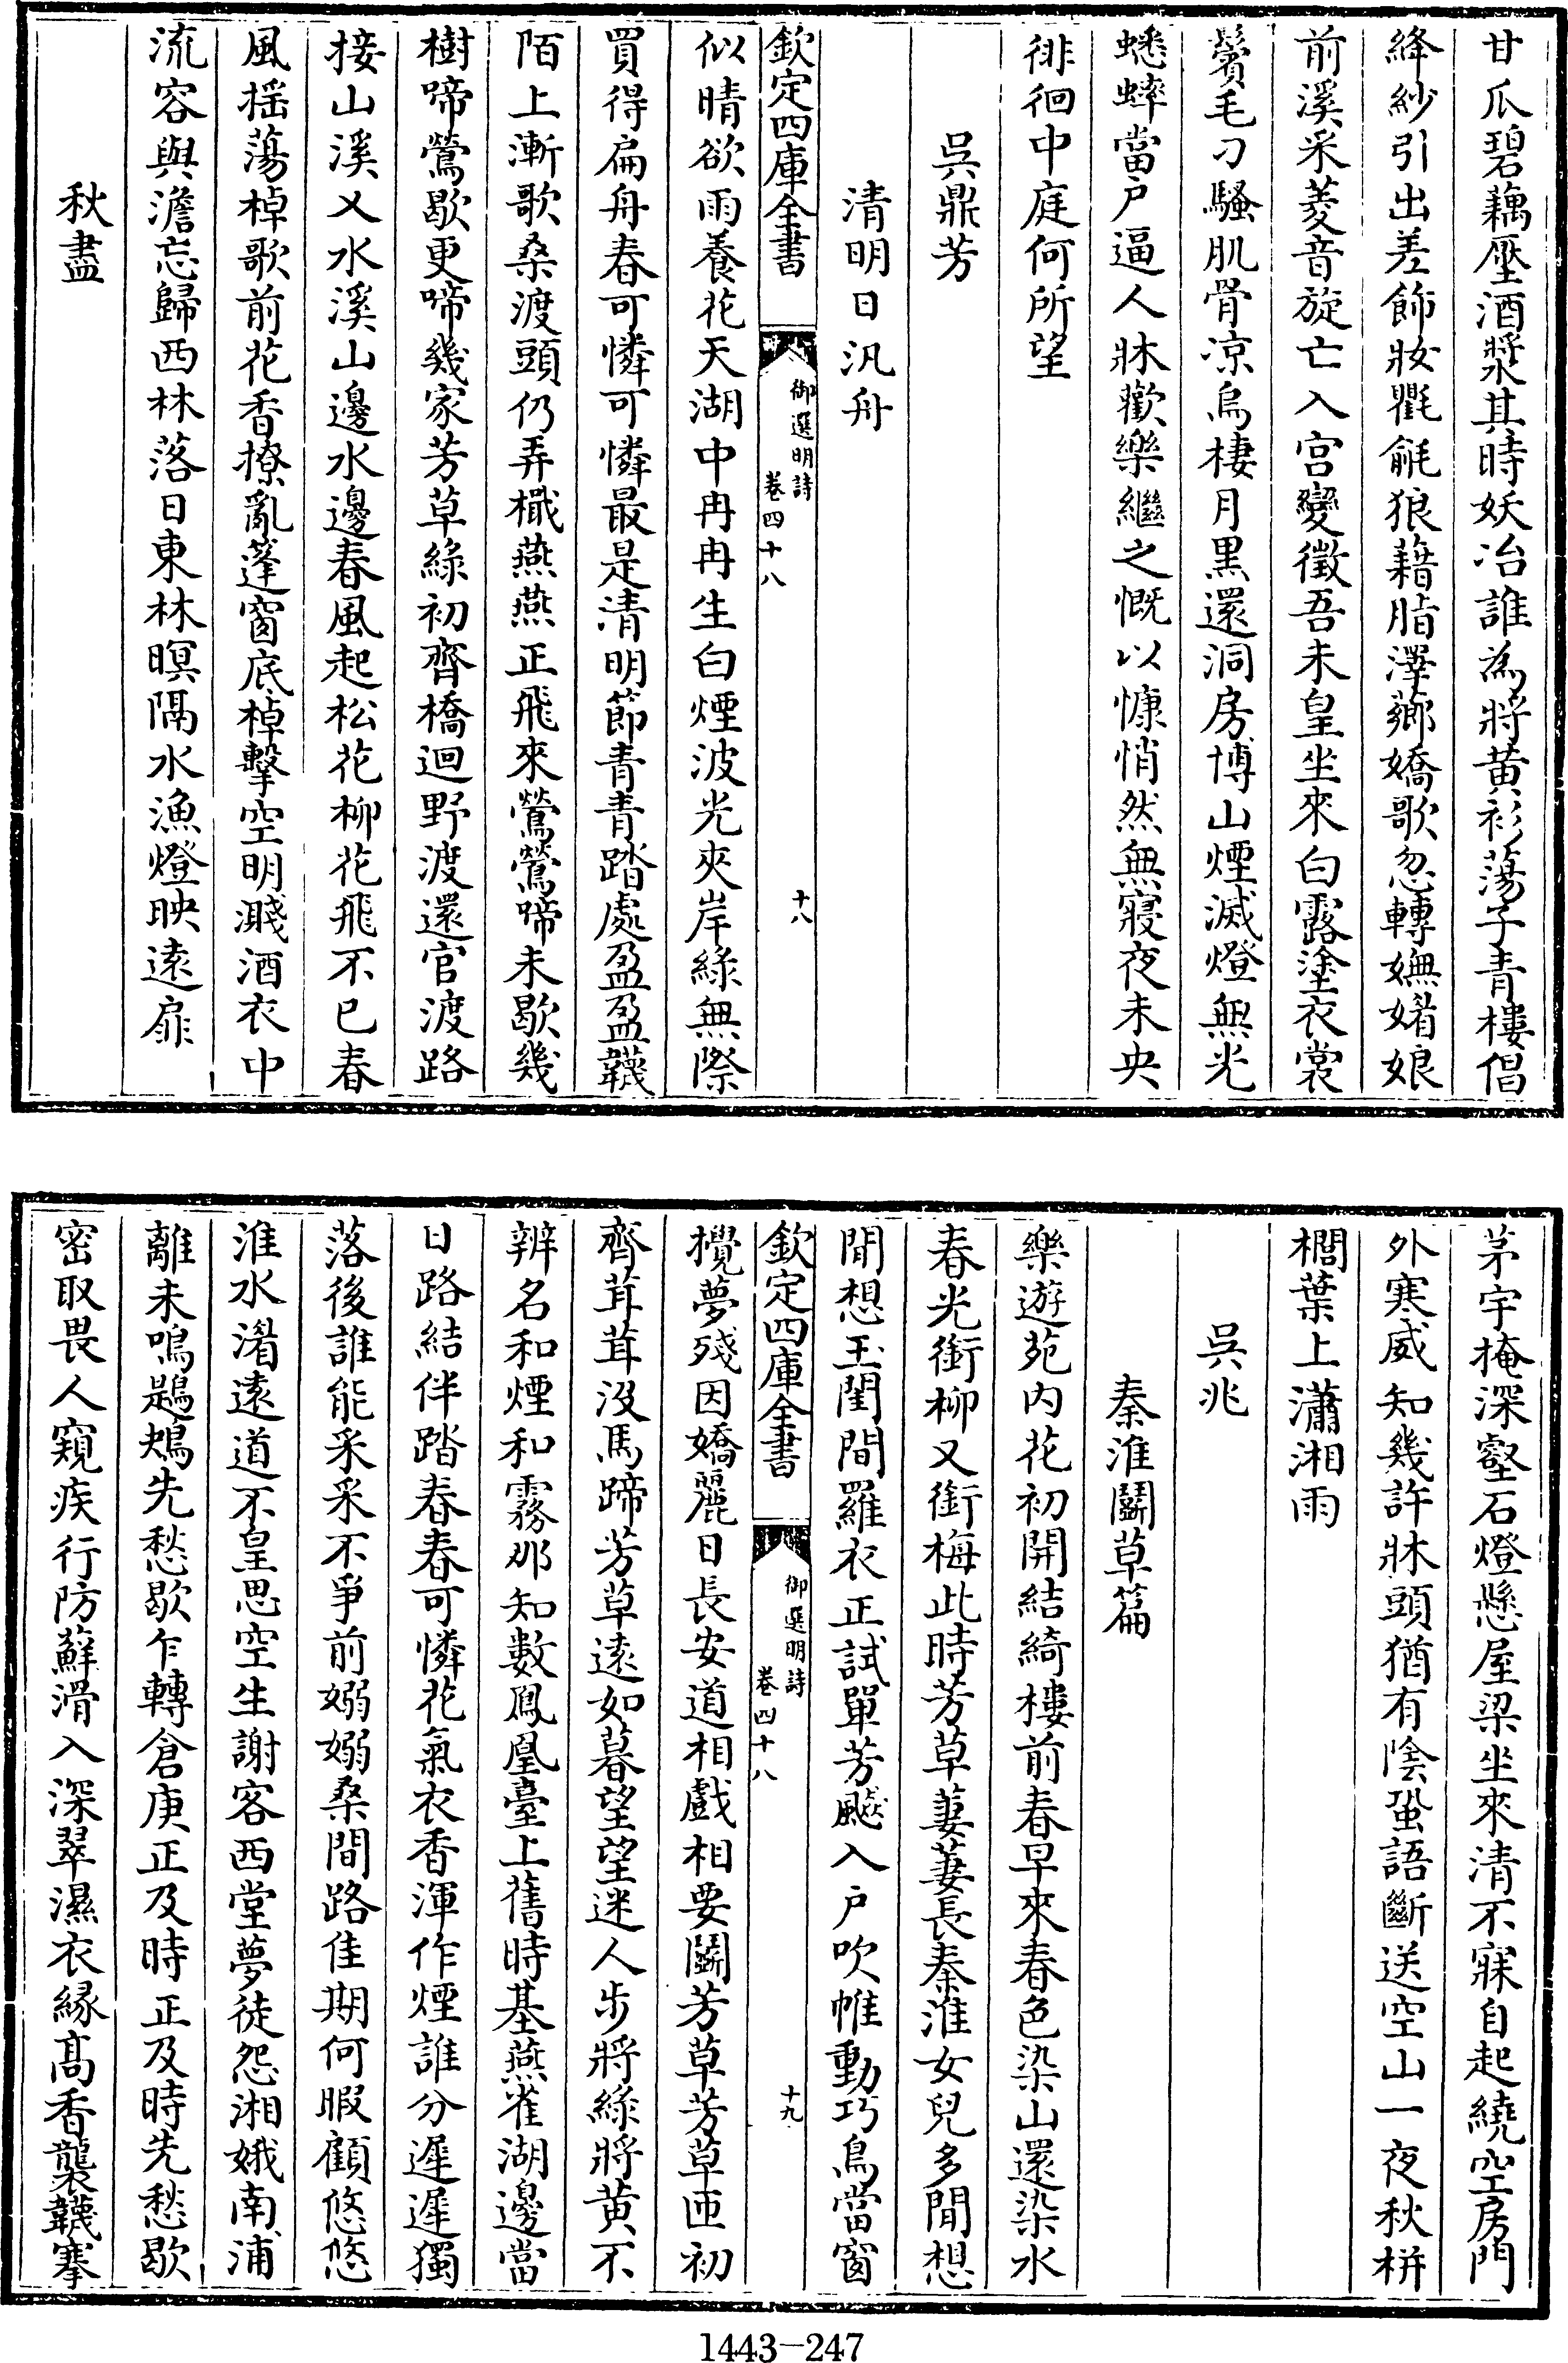 甘瓜碧藕壓酒漿其時妖冶誰為將黄衫蕩子青樓倡
絳紗引出差飾妝氍毹狼藉脂澤薌嬌歌忽轉嫵媚娘
前溪采菱音旋亡入宫變徵吾未皇坐來白露塗衣裳
鬢毛刁騷肌骨凉烏棲月黒還洞房博山煙滅燈無光
蟋蟀當户逼人牀歡樂繼之慨以慷悄然無寢夜未央
徘徊中庭何所望
吳鼎芳
清明日汎舟
欽定四庫全書
御選明詩
卷四十八
十八
似晴欲雨養花天湖中冉冉生白煙波光夾岸綠無際
買得扁舟春可憐可憐最是清明節青青踏處盈盈韈
陌上漸歌桑渡頭仍弄檝燕燕正飛來鶯鶯啼未歇幾
樹啼鶯歇更啼幾家芳草綠初齊橋迴野渡還官渡路
接山溪乂水溪山邊水邊春風起松花柳花飛不已春
風揺蕩棹歌前花香撩亂蓬窗底棹擊空明濺酒衣中
流容與澹忘歸西林落日東林暝隔水漁燈映遠扉
秋盡
茅宇掩深壑石燈懸屋梁坐來清不寐自起繞空房門
外寒威知幾許牀頭猶有陰蛩語斷送空山一夜秋栟
櫚葉上瀟湘雨
吳兆
秦淮鬬草篇
樂遊苑内花初開結綺樓前春早來春色染山還染水
春光銜柳又銜梅此時芳草萋萋長秦淮女兒多閒想
閒想玉閨間羅衣正試單芳飈入户吹帷動巧鳥當窗
攪夢殘因嬌麗日長安道相戲相要鬬芳草芳草匝初
齊茸茸沒馬蹄芳草遠如暮望望迷人步將綠將黄不
辨名和煙和霧那知數鳳凰臺上舊時基燕雀湖邊當
日路結伴踏春春可憐花氣衣香渾作煙誰分遲遲獨
落後誰能采采不爭前嫋嫋桑間路佳期何暇顧悠悠
淮水渚遠道不皇思空生謝客西堂夢徒怨湘娥南浦
離未鳴鶗鴂先愁歇乍轉倉庚正及時正及時先愁歇
密取畏人窺疾行防蘚滑入深翠濕衣縁髙香襲韈搴
1443-247